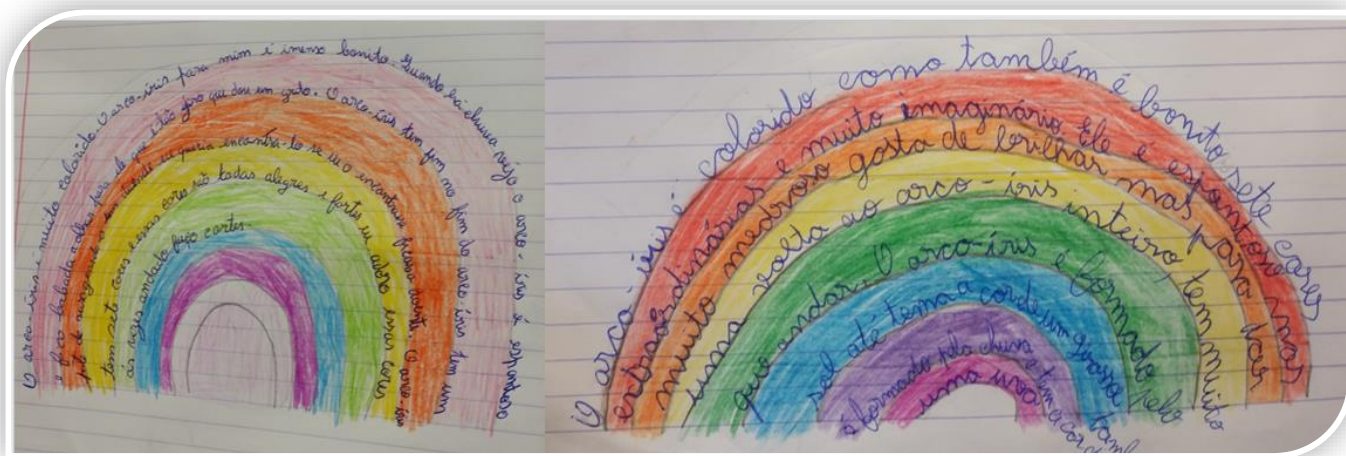 O arco-íris é muito colorido. O arco-íris para mim é imenso bonito. Quando há chuva vejo o arco-íris é esplendido
e fico babada a olhar para ele que até faço que dou um grito. O arco-íris tem fim no fim do arco-íris tem um
pote de
tem sete cores e essas cores são todas alegres e fortes eu adoro essas cores
às vezes amado faço cortes.
O arco-íris é colorido como também é bonito, sete cores
extraordinárias e muito imaginário. Ele é espantoso mas
muito medroso gosta de brilhar mas para dar
uma volta ao arco-íris inteiro tem muito
que andar. O arco-íris é formado pelo
sol até tem a cor de um
é formado pela chuva e tem a cor
uma uva